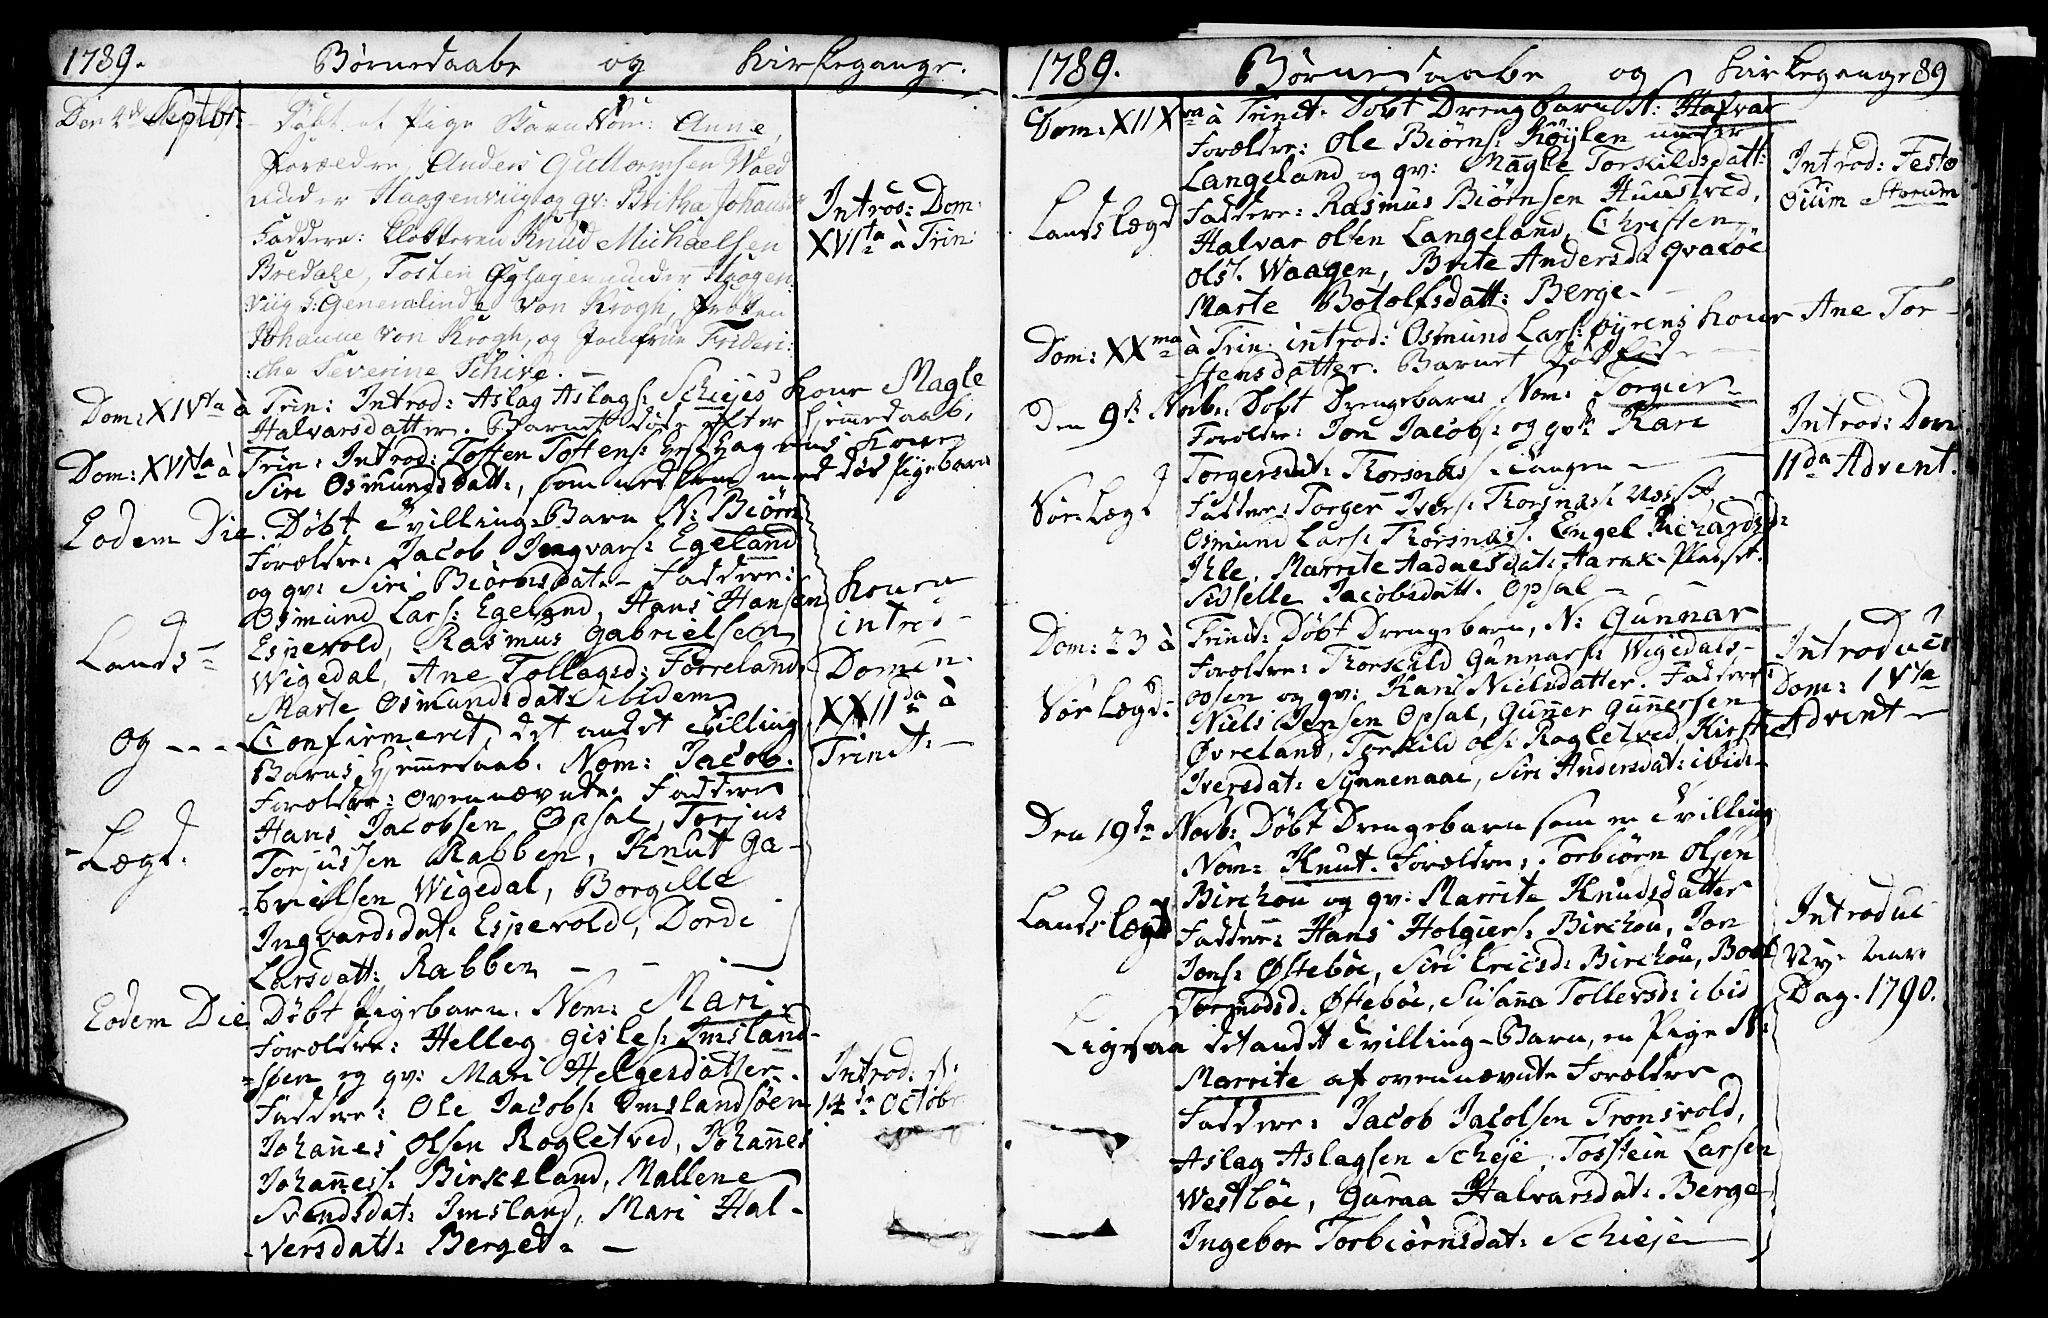 1789.
Børnedaabe og Kirkegange.
Den 4de Septbr:
Døbt et Pige Barn Nom: Anne,
Forældre, Anders Guttormsen Wold
under Haagenviig og qv: Britha Johansd
Faddere: Klokkeren Knud Michaelsen
Bredahl, Tosten under Haagen-
viig, Generalinde von Krogh, Frøken
Johanne von Krogh, og Jomfrue Frideri-
che Severine Schive.
Introd: Dom:
XVIta à Trin:
Dom: XIVta à Trin: Introd: Aslag Aslags: Schiejes Kone Magle
Halvarsdatter. Barnet døde efter Hiemmedaab,
Dom: XVIta à Trin: Introd: Tosten Tostens: Kone
Siri Osmundsdatt:, som nedkom med død Pigebarn
Eodem Die. Døbt Tvilling-Barn N: Biørn
Forældre: Jacob Ingvars: Egeland
og qv: Siri Biørnsdat: Faddere:
Osmund Lars: Egeland, Hans Hansen
Espevold, Rasmus Gabrielsen
Wigedal, Ane Tollagsd: Førreland
Marte Osmundsdat: ibidem
Lands-
og - - - Confirmeret, det andet Tvilling
Barns Hjemmedaab. Nom: Jacob.
Forældre: ovennævnte. Faddere
Hans Jacobsen Opsal, Torjus
Torjussen Rabben, Knut Ga-
brielsen Wigedal, Borgille
Ingvardsdat: Espevold, Dordi
Larsdatt: Rabben
Lægd.
Konen
introd-
Domin.
XXIIda à
Trinit:
Eodem Die Døbt Pigebarn. Nom: Mari.
Forældre: Helleg Gisles: Imsland-
søen og qv: Mari Helgesdatter.
Faddere: Ole Jacobs: Imslandsøen
Johannes Olsen Rogletved, Johannes
Johanness: Birkeland, Mallene
Svendsdat: Imsland, Mari Hal-
versdatt: Berge.
Introd: d.
14de Octobr
1789.
Børnedaabe og Kirkegange 89
Dom: XIIXva à Trinit: Døbt Drengbarn N: Halvar
Forældre: Ole Biørns: Røylen under
Langeland og qv: Magle Torkildsdatt:
Faddere: Rasmus Biørnsen Huustved,
Halvar Olsen Langeland, Christen
Ols: Waagen, Brite Andersd: Qvaløe
Marte Botolfsdatt: Berge.
Landslægd
Introd: Festo
Omn:
Dom: XXma à Trin: introd: Osmund Lars: Øyrens Kone Ane Tor-
stensdatter. Barnet dødfød
Den 9de Novb: Døbt Drengebarn Nom: Torgier
Forældre: Jon Jacobs: og qv: Kari
Torgersdat: Thorsnæs-Tangen
Faddere: Torger Ivers: Thorsnæs:
Osmund Lars: Thorsnæs. Engel Richardsd:
Ihle, Marrite Aadnesdat: Aarek-Pladset.
Sidselle Jacobsdatt. Opsal
Sørlægd
Introd: Dom
IIda Advent.
Dom: 23 à Trinit: Døbt Drengebarn, N: Gunnar
Forældre: Thorkild Gunnars: Wigedals-
osen og qv: Kari Nielsdatter. Faddere:
Niels Jensen Opsal, Gunner Gunnersen
Øvreland, Torkild Ols: Rogletved, Kirsti
Iversdat: Synnenaae, Siri Andersdat: ibid:
Sørlægd:
Introduct
Dom: IVta
Advent
Den 19de Novb: Døbt Drengebarn som en Tvilling
Nom: Knut. Forældre: Torbiørn Olsen
Birchou og qv: Marrite Knudsdatter
Faddere: Hans Holgiers: Birchou, Jon
Jons: Østebøe, Siri Ericsd: Birchou, Boel
Tormodsd. Østebøe, Susana Tollevsd: ibid
Landslægd
Ligesaa det andet Tvilling-Barn, en Pige N:
Marrite af ovennævnte Forældre
Faddere: Jacob Jacobsen Tronsvold,
Aslag Aslagsen Scheje, Tosstein Larsen
Westbøe, Guraa Halvarsdat: Berge
Ingebor Torbiørnsdat: Schieje
Introduc
Ny-Aars
Dag. 1790.